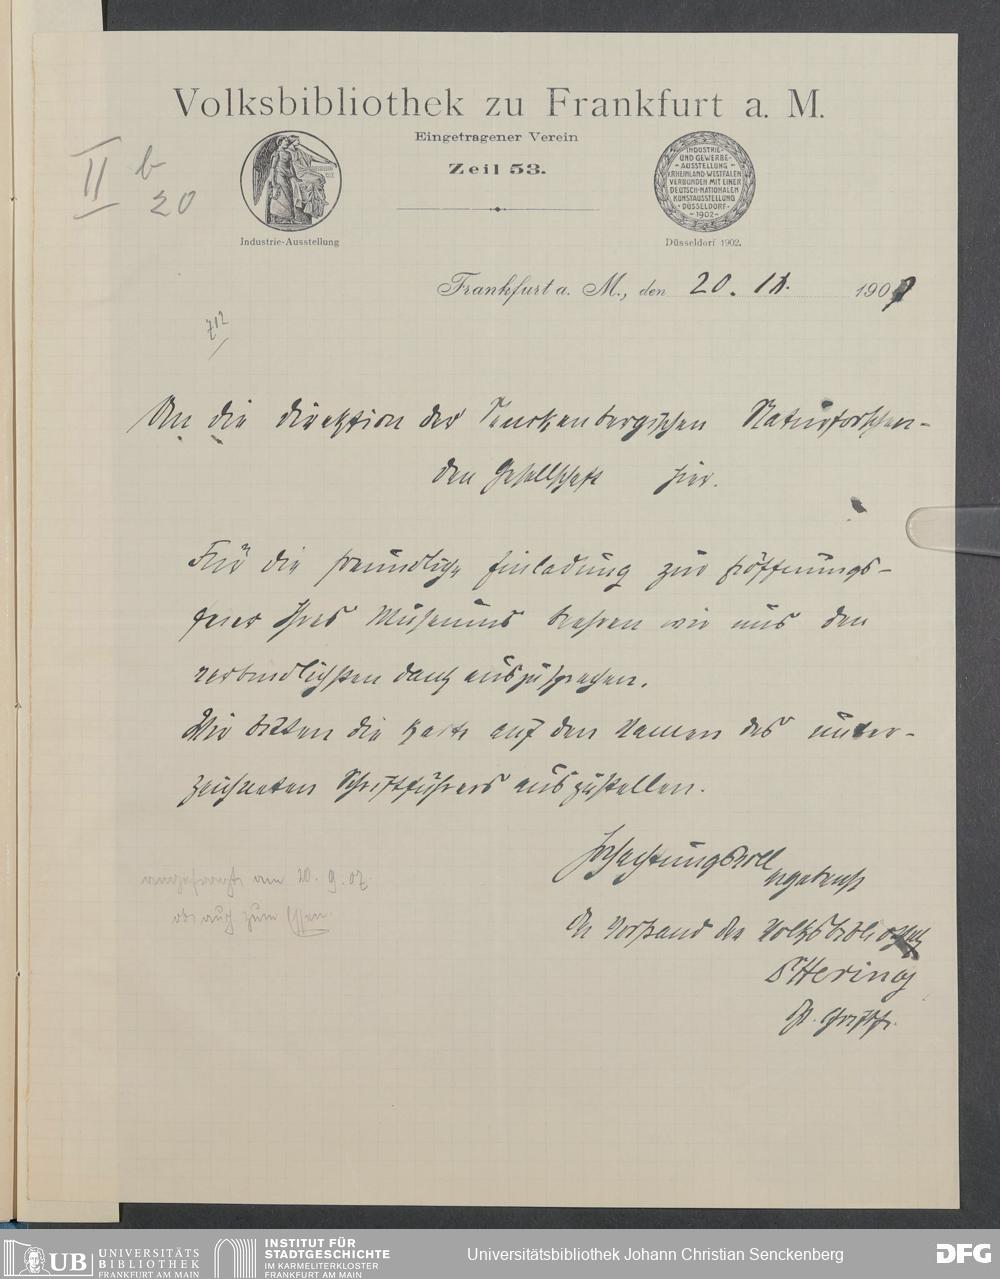 Volksbibliothek zu Frankfurt a. M.
Eingetragener Verein
Zeil 53.
II b
20
INDUSTRIE-
UND GEWERBE-
AUSSTELLUNG
RHEINLAND-WESTFALEN
VERBUNDEN MIT EINER
DEUTSCH-NATIONALEN
KUNSTAUSSTELLUNG
DÜSSELDORF
1902
Industrie-Ausstellung
Düsseldorf 1902.
Frankfurt a. M., den 20. IX. 1907
712
An die Direktion der Senckenbergischen Naturforschen-
den Gesellschaft hier.
Für die freundliche Einladung zur Eröffnungs-
feier Ihres Museums beehren wir uns den
verbindlichsten Dank auszusprechen.
Wir bitten die Karte auf den Namen des unter-
zeichneten Schriftführers auszustellen.
Hochachtungsvoll
ergebenst
Der Vorstand der Volksbibliothek
Hering
Schriftf.
angefragt am 20. 9. 07.
ob auch zum Essen.
UB UNIVERSITÄTS
BIBLIOTHEK
FRANKFURT AM MAIN
INSTITUT FÜR
STADTGESCHICHTE
IM KARMELITERKLOSTER
FRANKFURT AM MAIN
Universitätsbibliothek Johann Christian Senckenberg
DFG